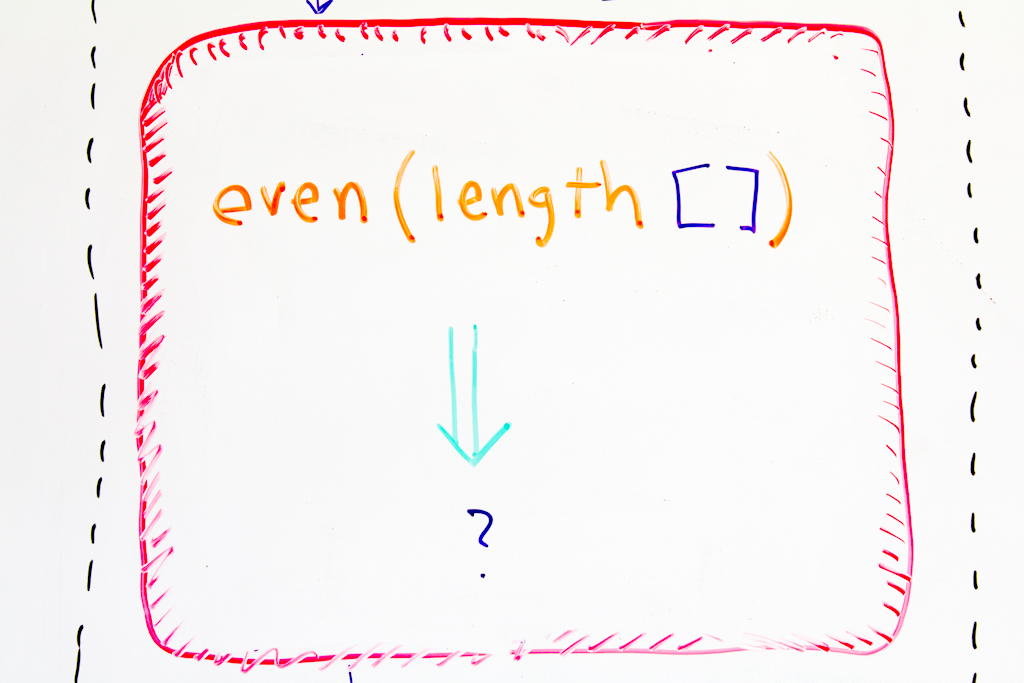 even (length [])
?